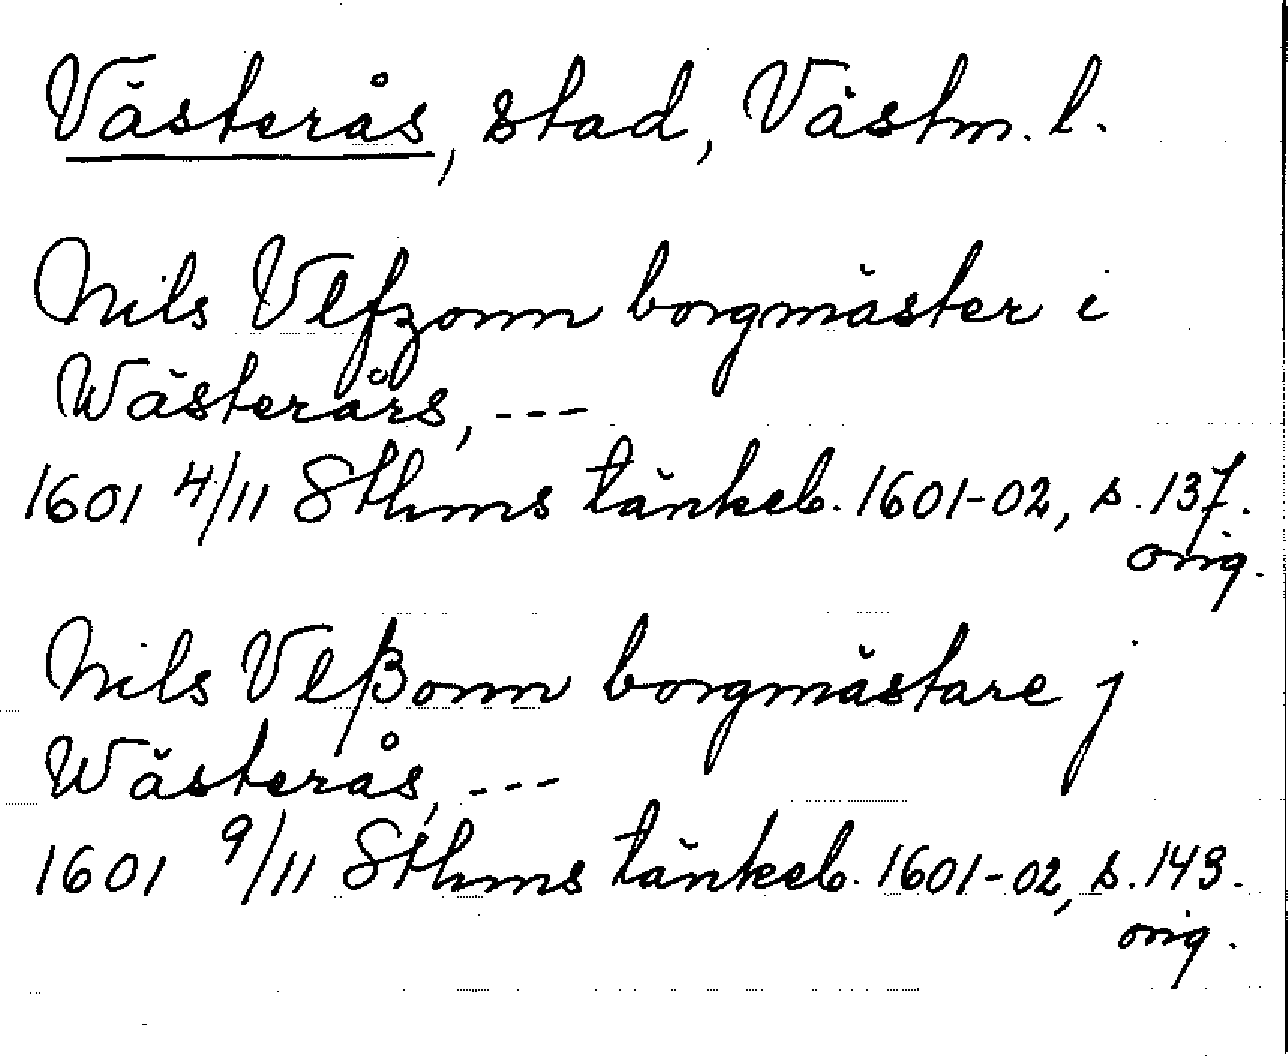 Västerås, stad, Västm. l.
Nils Vlfzonn borgmäster i
Wästerårs, ---
1601 4/11 Sthms tänkeb. 1601-02, s. 137.
orig.
Nils Vlßonn borgmästare j
Wästerås, ---
1601 9/11 Sthms tänkeb. 1601-02, s. 143.
orig.